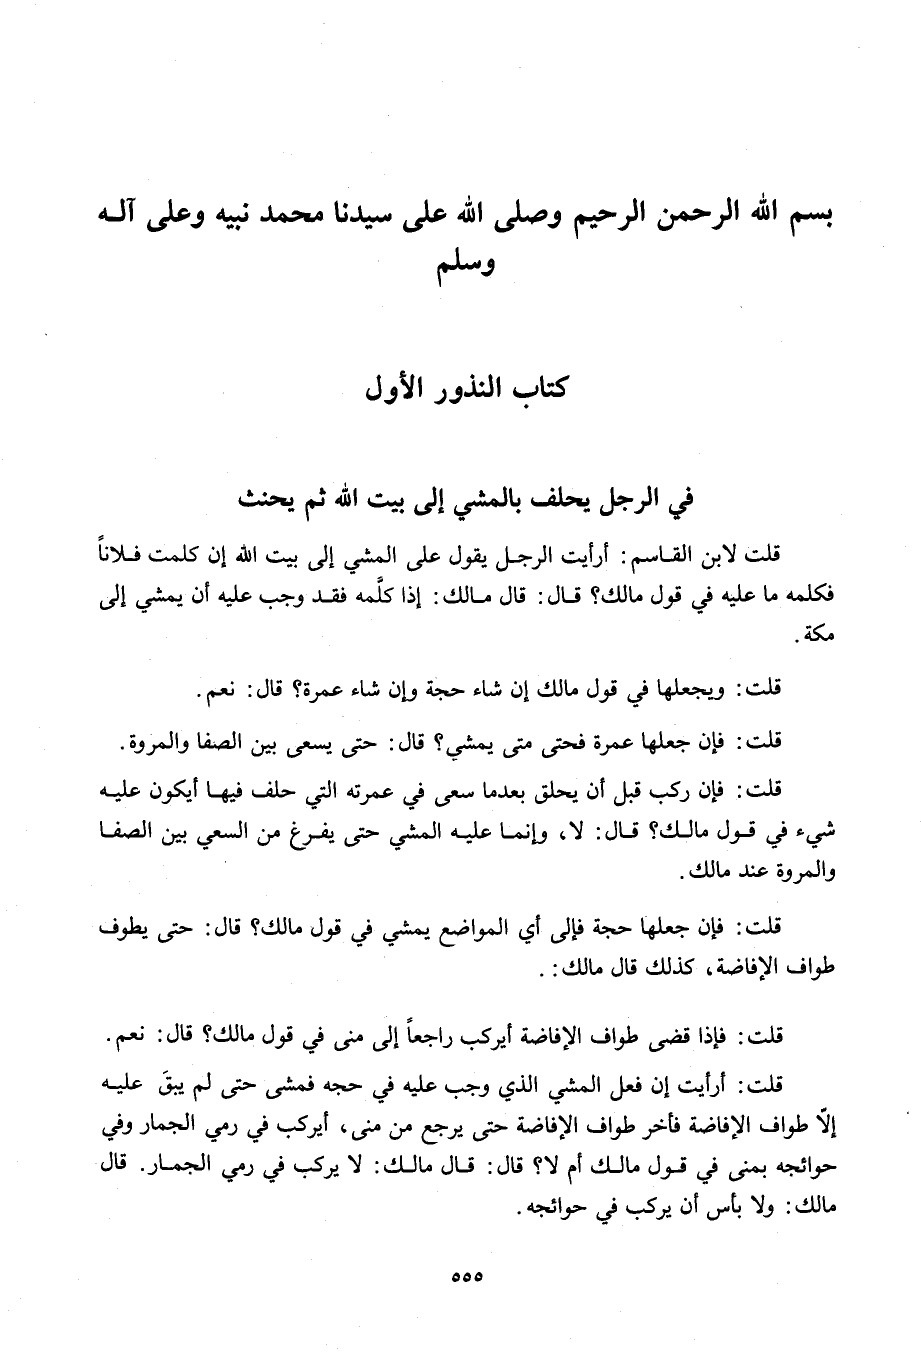 بسم الله الرحمن الرحيم وصلى الله على سيدنا محمد نبيه وعلى آله
وسلم
كتاب النذور الأول
في الرجل يحلف بالمشي إلى بيت الله ثم يحنث
قلت لابن القاسم: أرأيت الرجل يقول على المشي إلى بيت الله إن كلمت فلاناً
فكلمه ما عليه في قول مالك؟ قال: قال مالك: إذا كلَّمه فقد وجب عليه أن يمشي إلى
مكة.
قلت: ويجعلها في قول مالك إن شاء حجة وإن شاء عمرة؟ قال: نعم.
قلت: فإن جعلها عمرة فحتى متى يمشي؟ قال: حتى يسعى بين الصفا والمروة.
قلت: فإن ركب قبل أن يحلق بعدما سعى في عمرته التي حلف فيها أيكون عليه
شيء في قول مالك؟ قال: لا، وإنما عليه المشي حتى يفرغ من السعي بين الصفا
والمروة عند مالك.
قلت: فإن جعلها حجة فإلى أي المواضع يمشي في قول مالك؟ قال: حتى يطوف
طواف الإفاضة، كذلك قال مالك: .
قلت: فإذا قضى طواف الإفاضة أيركب راجعاً إلى منى في قول مالك؟ قال: نعم.
قلت: أرأيت إن فعل المشي الذي وجب عليه في حجه فمشى حتى لم يبقَ عليه
إلّا طواف الإفاضة فأخر طواف الإفاضة حتى يرجع من منى، أيركب في رمي الجمار وفي
حوائجه بمنى في قول مالك أم لا؟ قال: قال مالك: لا يركب في رمي الجمار. قال
مالك: ولا بأس أن يركب في حوائجه.
٥٥٥